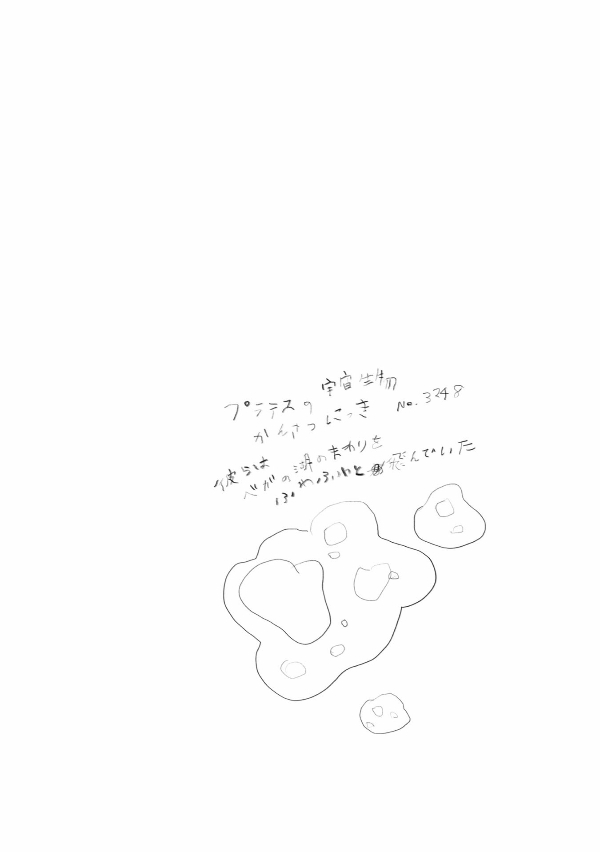 宇宙生物
プラテスの
かんさつにっき No.3248
彼らは
ベガの湖のまわりを
ふわふわと飛んでいた